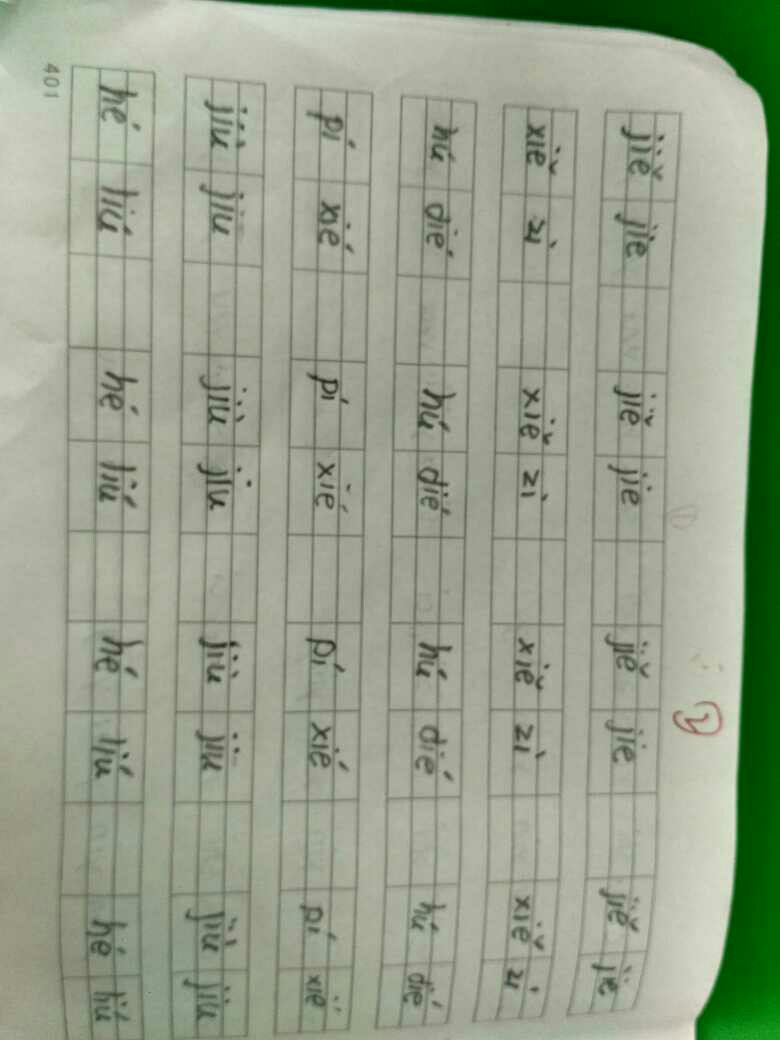 jiě jie jiě jie jiě jie jiě jie
xiě zì xiě zì xiě zì xiě zì
hú dié hú dié hú dié hú dié
pí xié pí xié pí xié pí xié
jiù jiu jiù jiu jiù jiu jiù jiu
hé liú hé liú hé liú hé liú
401